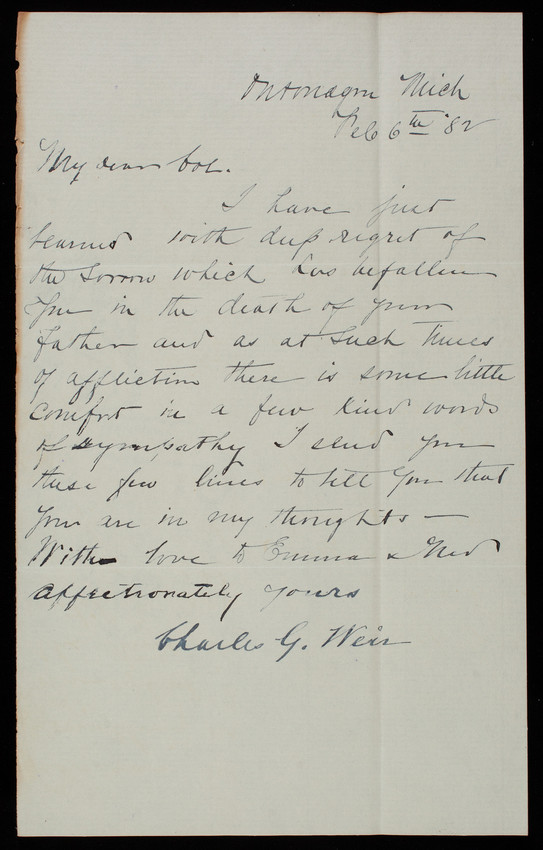 Ontonagon Mich
Feb 6th '82
My dear Col.
I have just
learned with deep regret of
the sorrow which has befallen
you in the death of your
father and as at such times
of affliction there is some little
comfort in a few kind words
of sympathy I send you
these few lines to tell you that
you are in my thoughts —
With love to Emma & Ned
affectionately yours
Charles G. Weir